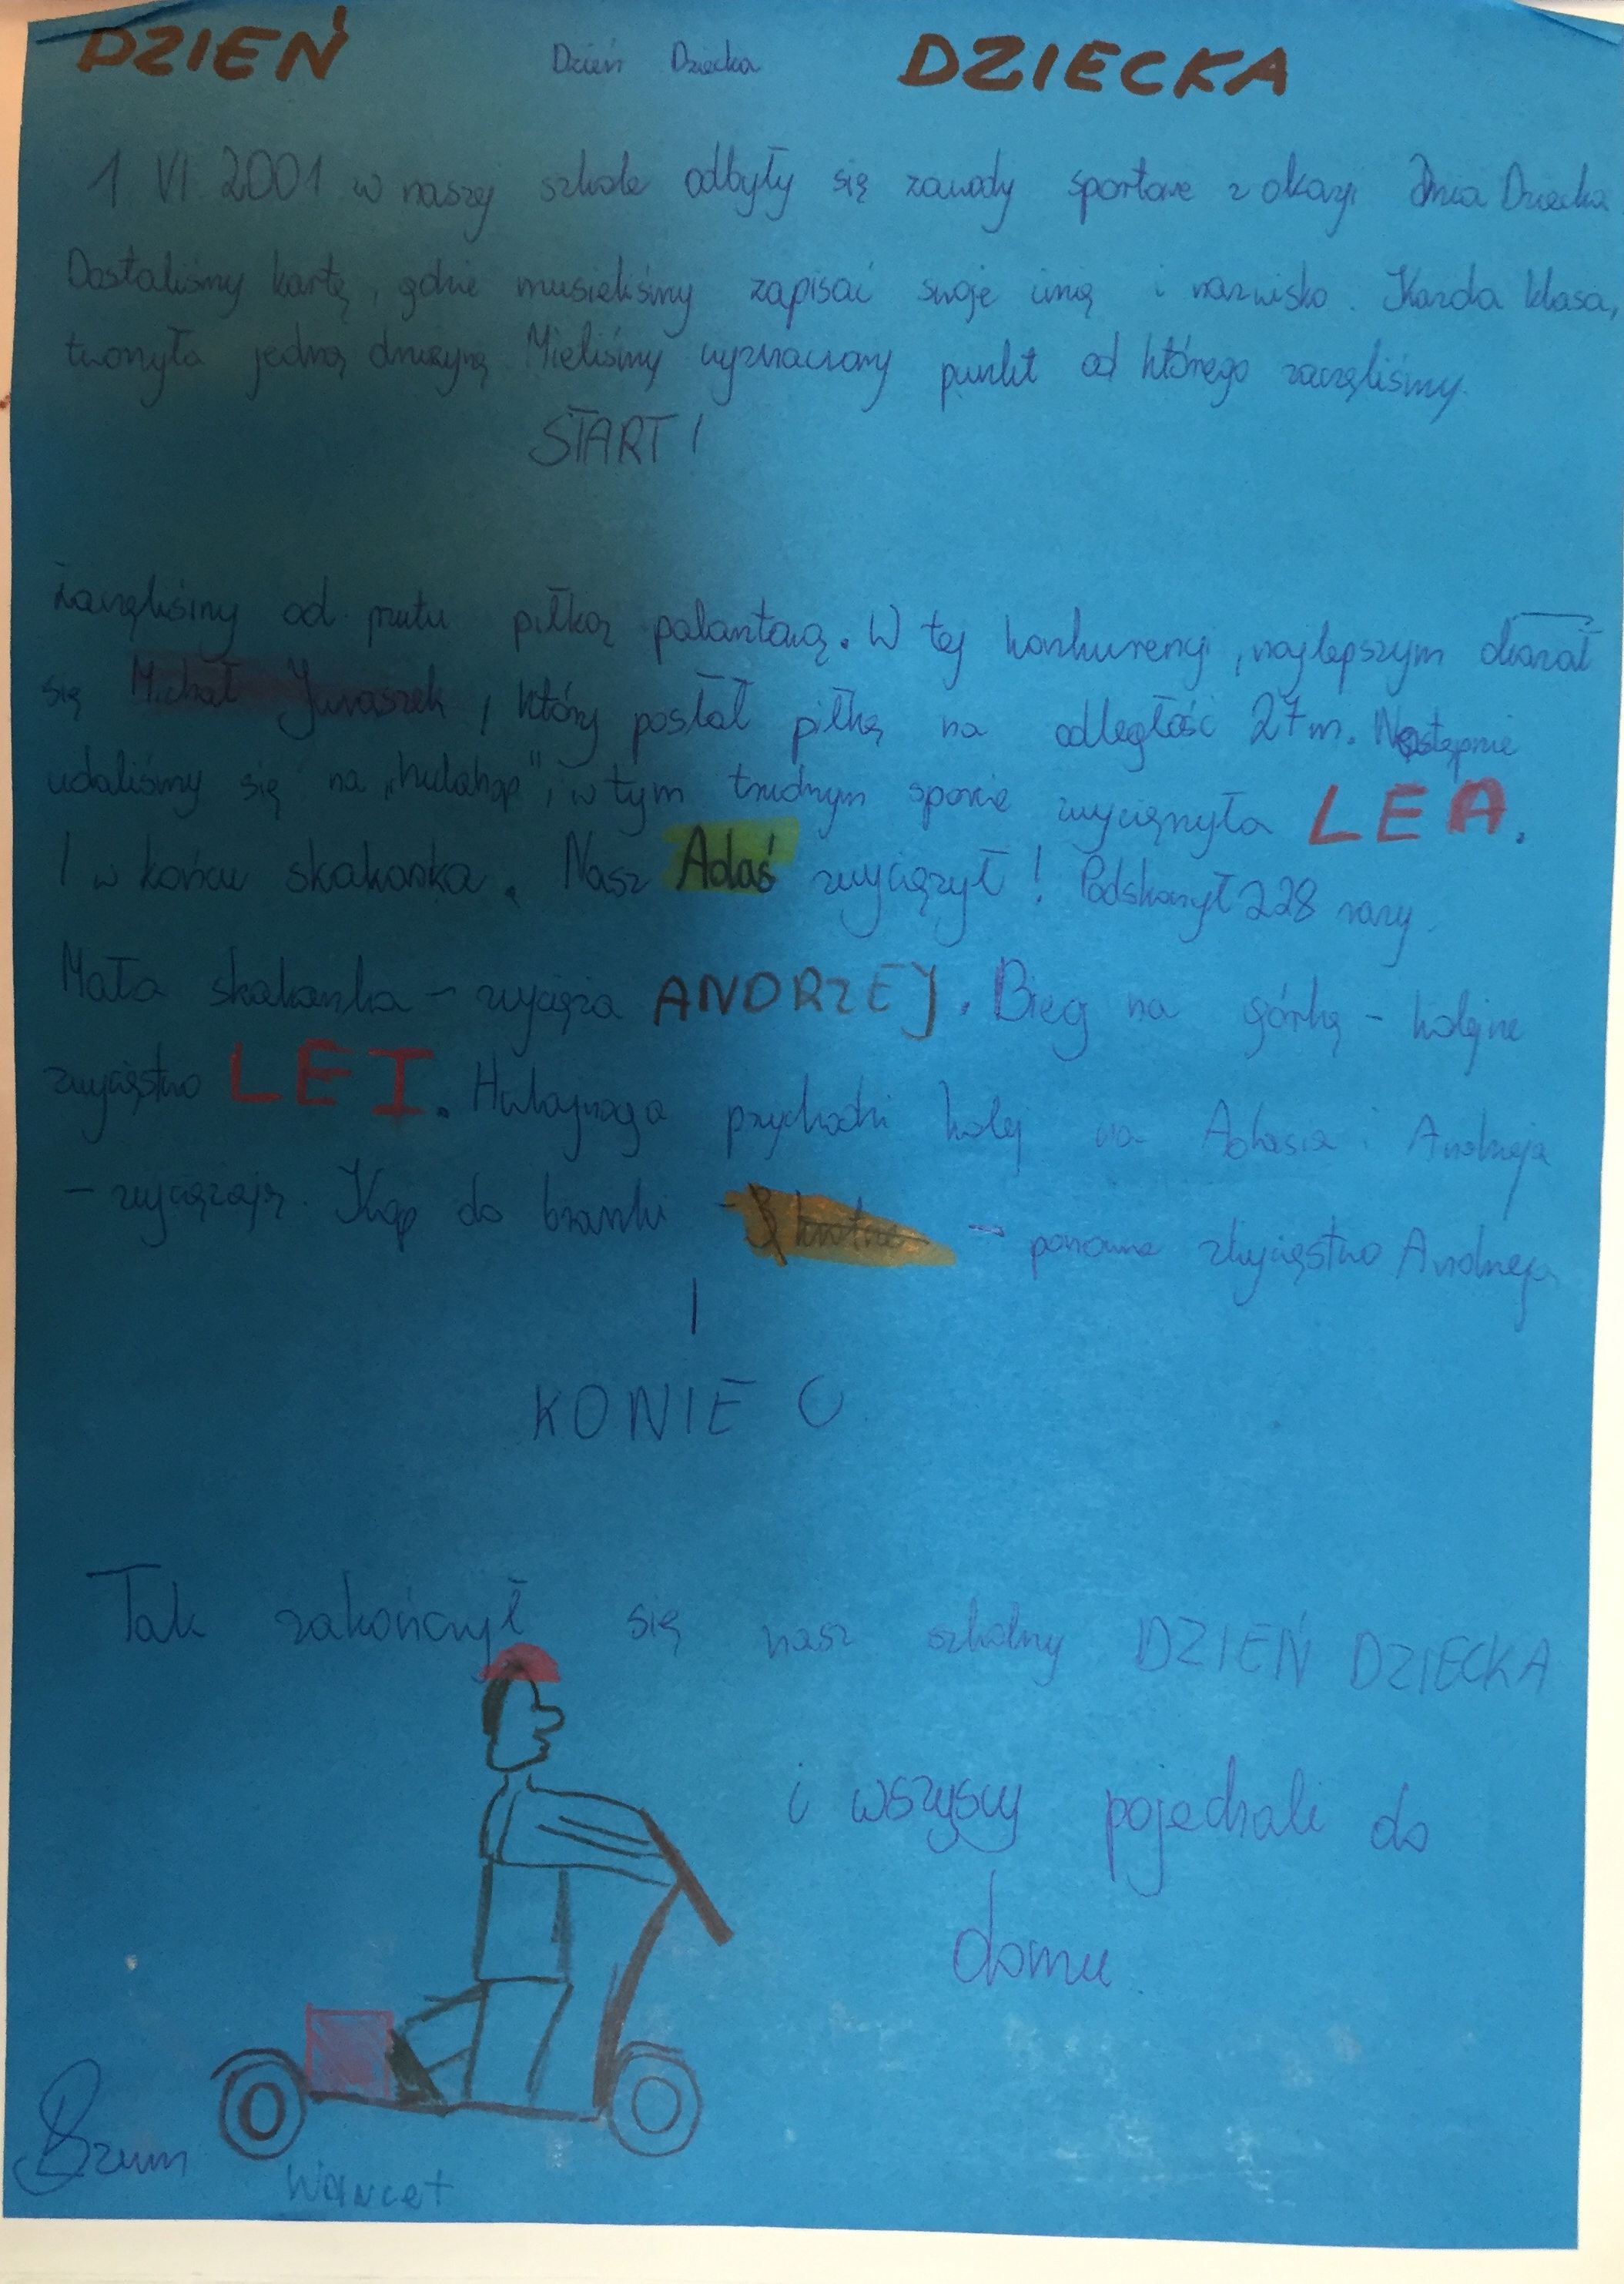 DZIEŃ Dzień Dziecka DZIECKA
1 VI 2001 w naszej szkole odbyły się zawody sportowe z okazji Dnia Dziecka
Dostaliśmy kartę, gdzie musieliśmy zapisać swoje imię i nazwisko. Każda klasa,
tworzyła jedną drużynę Mieliśmy wyznaczony punkt od którego zaczęliśmy.
START!
Zaczęliśmy od rzutu piłką palantową. W tej konkurencji, najlepszym okazał
się Michał Juraszek, który posłał piłkę na odległość 27m. Następnie
udaliśmy się na „hulahop", w tym trudnym sporcie zwyciężyła LEA.
I w końcu skakanka. Nasz Adaś zwyciężył! Podskoczył 228 razy.
Mała skakanka – zwycięża ANDRZEJ. Bieg na górkę – kolejne
zwycięstwo LEI. Hulajnoga przychodzi kolej na Adasia i Andrzeja
– zwyciężają. Kop do bramki – – ponowne zwycięstwo Andrzeja
I
KONIEC
Tak zakończył się nasz szkolny DZIEŃ DZIECKA
i wszyscy pojechali do
domu
Brum